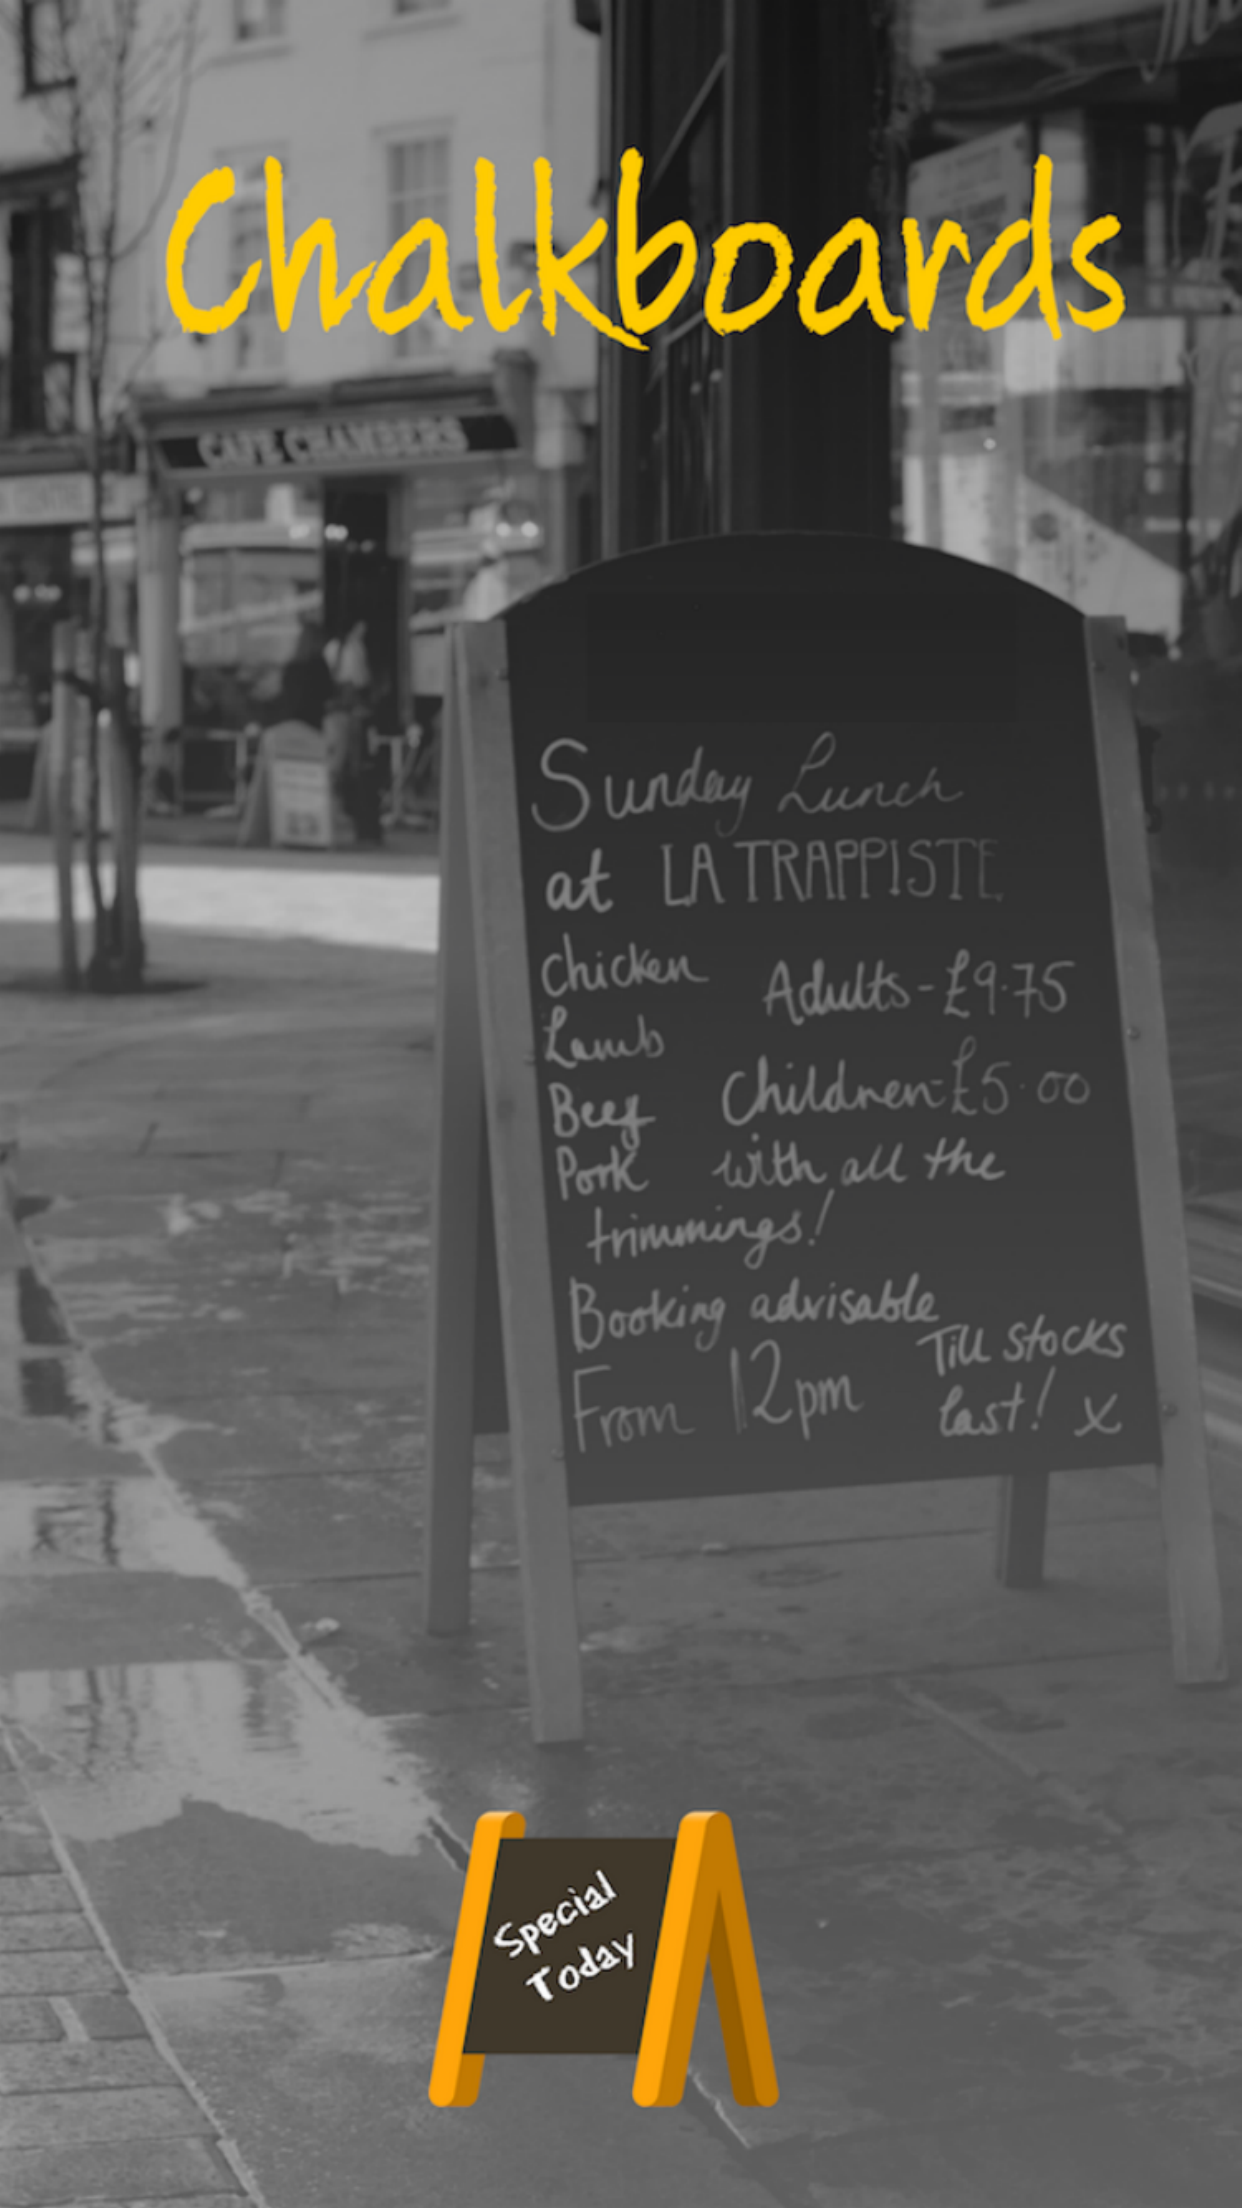 Chalkboards
CAFE CHAMBERS
Sunday Lunch
at LA TRAPPISTE
Chicken
Adults - £9.75
Lamb
Children - £5.00
Beef
Pork with all the
trimmings!
Booking advisable
Till stocks
From 12pm
last! x
Special
Today